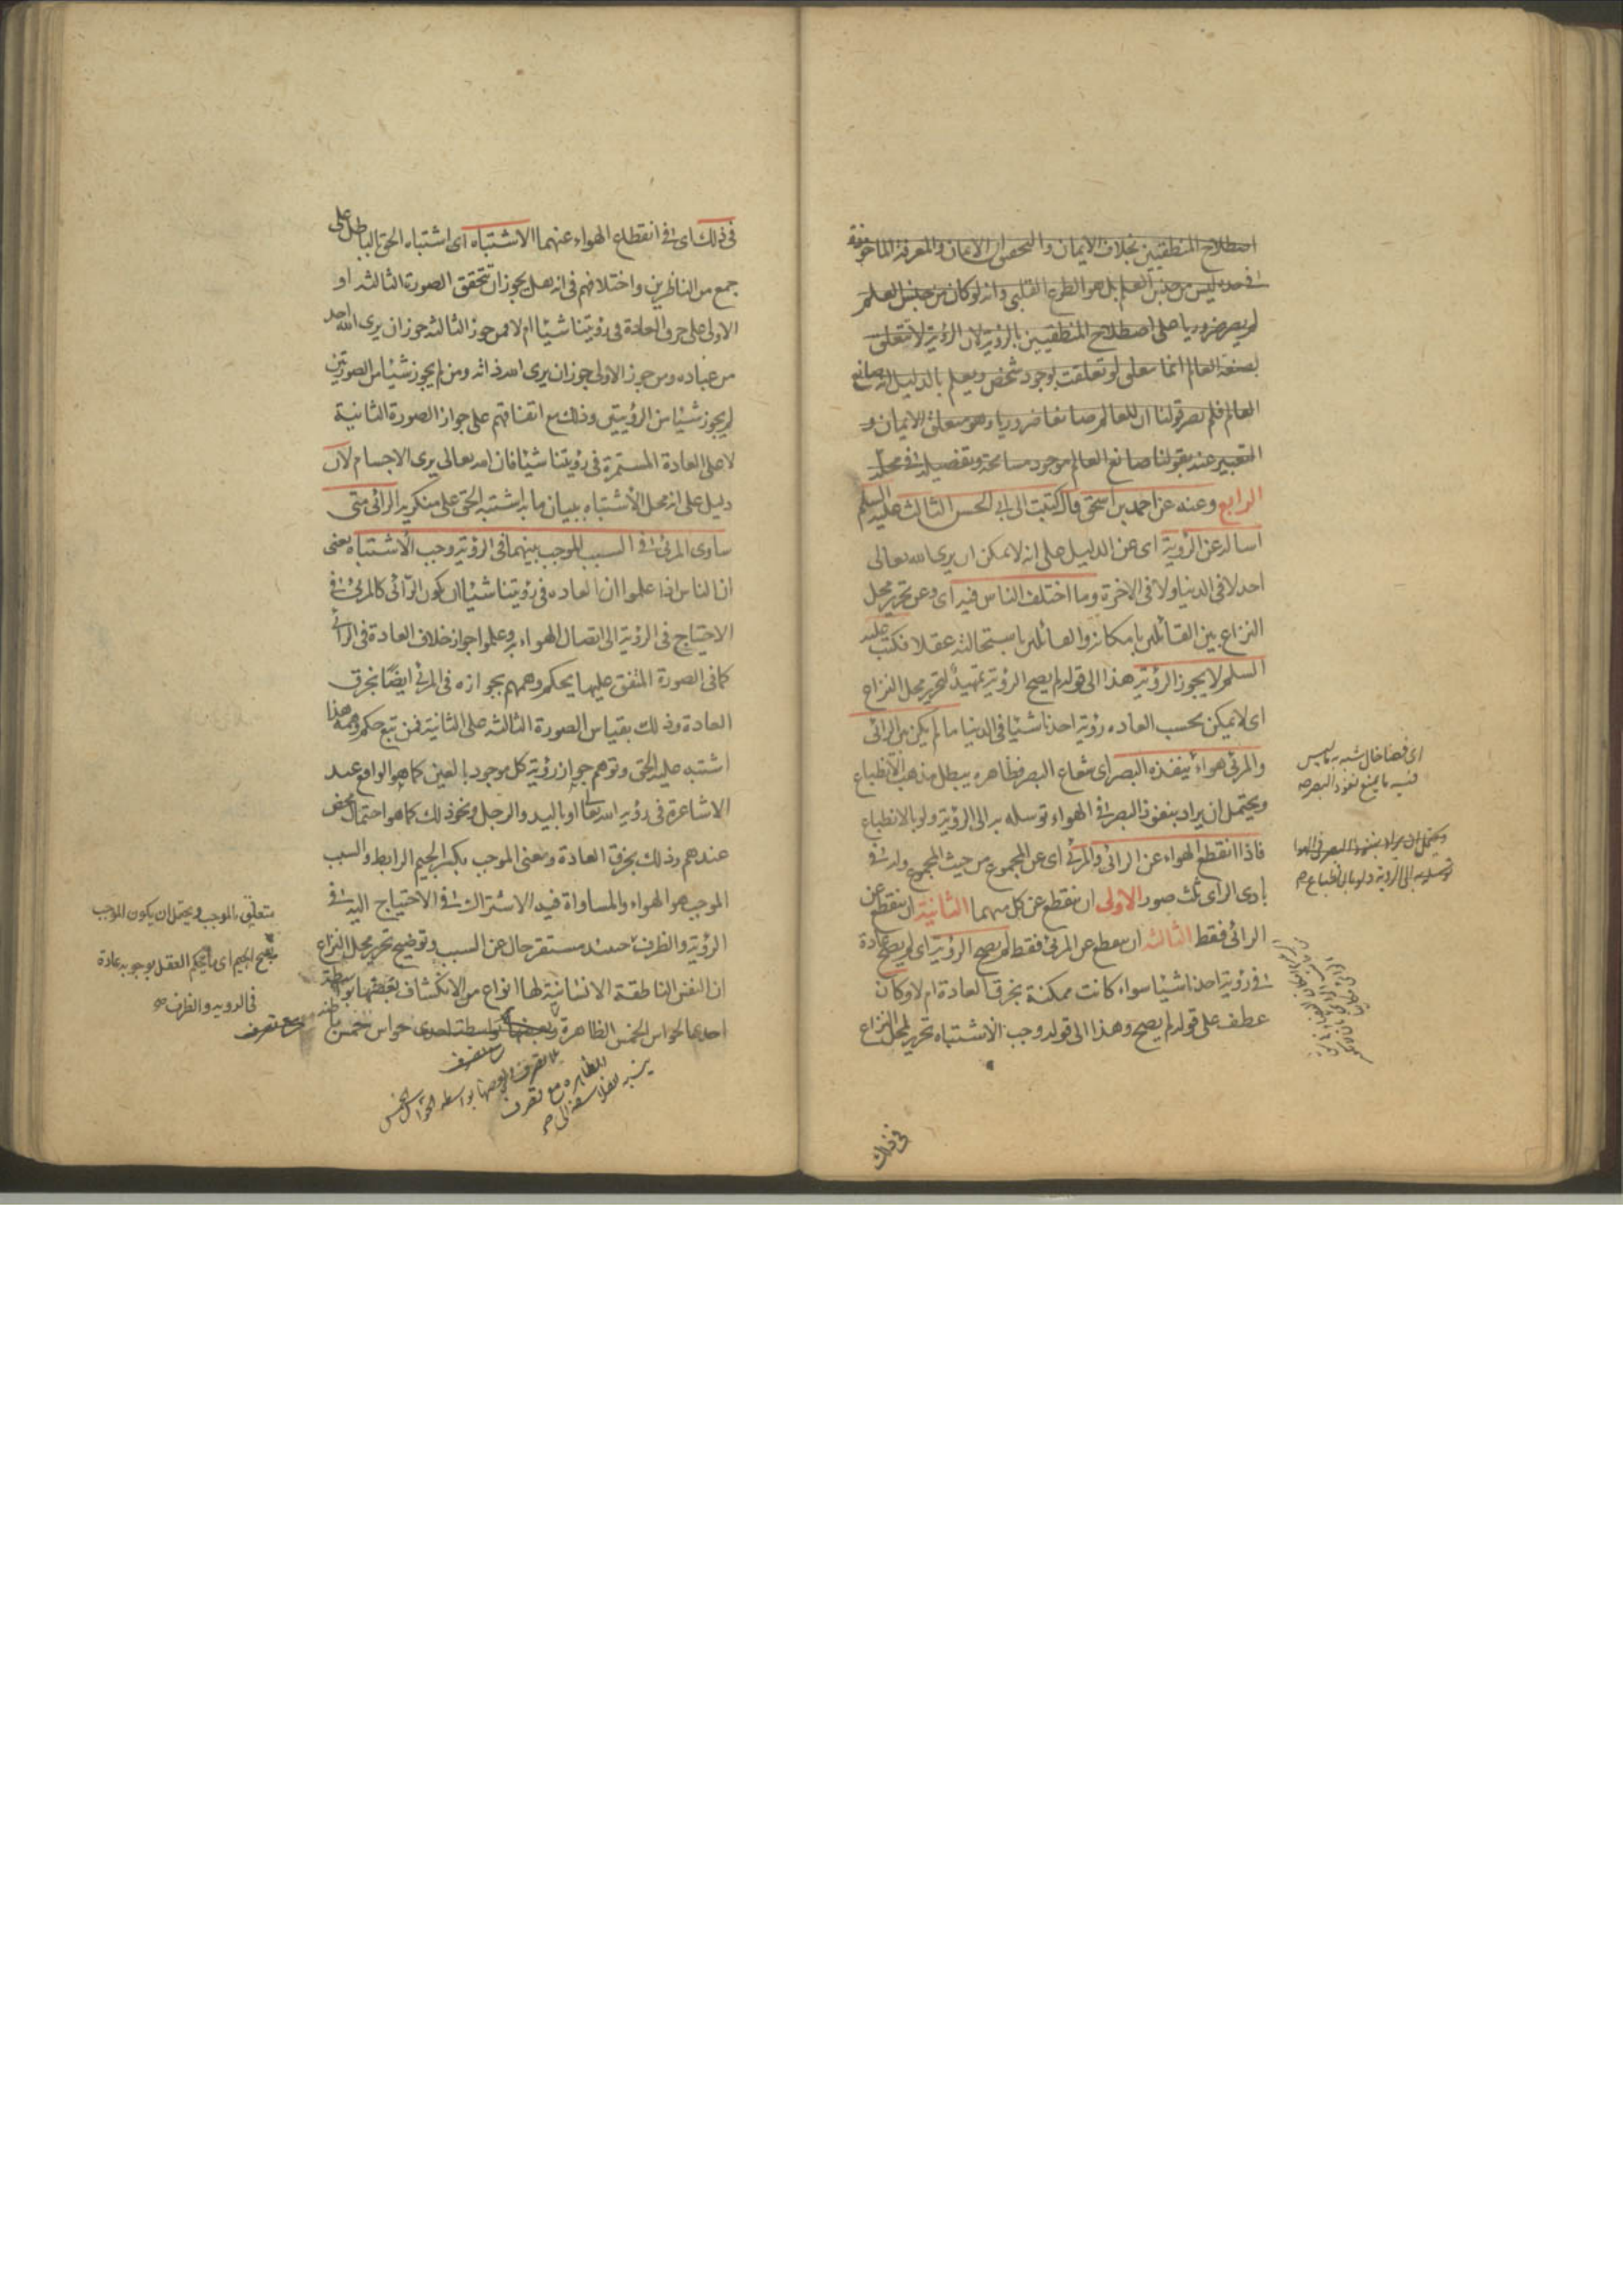 اصطلاح المنطقيين بخلاف الايمان والتحقيق ان الايمان والمعرفة الماخوذة
فى حده ليس من جنس العلم بل هو الطوع القلبى وانه لو كان من جنس العلم
لم يصر ضروريا على اصطلاح المنطقيين بالرؤية لان الرؤية لا تتعلق
بصنعة العالم انما تتعلق لو تعلقت بوجود شخص ويعلم بالدليل انه صانع
العالم فلم يصر قولنا ان للعالم صانعا ضروريا وهو متعلق الايمان و
التعبير عنه بقولنا صانع العالم موجود مسامحة وتفصيله فى محله
الرابع وعنه عن احمد بن اسحق قال كتبت الى ابى الحسن الثالث عليه السلم
اساله عن الرؤية اى عن الدليل على انه لا يمكن ان يرى الله تعالى
احد لا فى الدنيا ولا فى الاخرة وما اختلف الناس فيه اى وعن تحرير محل
النزاع بين القائلين بامكانه والقائلين باستحالته عقلا فكتب عليه
السلم لا يجوز الرؤية هذا الى قوله لم يصح الرؤية تمهيد لتحرير محل النزاع
اى لا يمكن بحسب العادة رؤية احدنا شيئا فى الدنيا ما لم يكن بين الرائى
والمرئى هواء ينفذه البصر اى شعاع البصر فظاهره يبطل مذهب الانطباع
ويحتمل ان يراد بنفوذ البصر فى الهواء توسله به الى الرؤية ولو بالانطباع
فاذا انقطع الهواء عن الرائى والمرئى اى عن المجموع من حيث المجموع وله فى
بادى الراى ثلث صور الاولى ان ينقطع عن كل منهما الثانية ان ينقطع عن
الرائى فقط الثالثة ان ينقطع عن المرئى فقط لم يصح الرؤية اى لم يصح عادة
فى رؤية احدنا شيئا سواء كانت ممكنة بخرق العادة ام لا وكان
عطف على قوله لم يصح وهذا الى قوله وجب الاشتباه تحرير لمحل النزاع
اى فضا خال شبه به ليس
فيه ما يمنع نفوذ البصر
ويحتمل ان يراد بنفوذ البصر فى الهوا
توسله به الى الرؤية ولو بالانطباع
فى ذلك
فى ذلك اى فى انقطاع الهواء عنهما الاشتباه اى اشتباه الحق بالباطل على
جمع من الناظرين واختلافهم فى انه هل يجوز ان تتحقق الصورة الثالثة او
الاولى على خرق العادة فى رؤيتنا شيئا ام لا فمن جوز الثالثة جوز ان يرى الله احد
من عباده ومن جوز الاولى جوز ان يرى الله ذاته ومن لم يجوز شيئا من الصورتين
لم يجوز شيئا من الرؤيتين وذلك مع اتفاقهم على جواز الصورة الثانية
لا على العادة المستمرة فى رؤيتنا شيئا فان الله تعالى يرى الاجسام لان
دليل على انه محل الاشتباه ببيان ما به اشتبه الحق على منكريه الرائى متى
ساوى المرئى فى السبب الموجب بينهما فى الرؤية وجب الاشتباه يعنى
ان الناس اذا علموا ان العادة فى رؤيتنا شيئا ان يكون الرائى كالمرئى فى
الاحتياج فى الرؤية الى اتصال الهواء به وعلموا جواز خلاف العادة فى الرائى
كما فى الصورة المتفق عليها يحكم وهمهم بجوازه فى المرئى ايضا بخرق
العادة وذلك بقياس الصورة الثالثة على الثانية فمن تبع حكم وهمه هذا
اشتبه عليه الحق وتوهم جواز رؤية كل موجود بالعين كما هو الواقع عند
الاشاعرة فى رؤية الله تعالى او باليد والرجل ونحو ذلك كما هو احتمال محض
عندهم وذلك بخرق العادة ومعنى الموجب بكسر الجيم الرابط والسبب
الموجب هو الهواء والمساواة فيه الاشتراك فى الاحتياج اليه فى
الرؤية والظرف حينئذ مستقر حال عن السبب وتوضيح تحرير محل النزاع
ان النفس الناطقة الانسانية لها انواع من الانكشاف بعضها بواسطة
احدى الحواس الخمس الظاهرة وبعضها بواسطة احدى حواس خمس باطنة
متعلق بالموجب ويحتمل ان يكون الموجب
بفتح الجيم اى ما يحكم العقل بوجوبه عادة
فى الرؤية والظرف
مع تصرف
بلا تصرف وبعضها بواسطة الحواس الخمس
الظاهرة مع تصرف